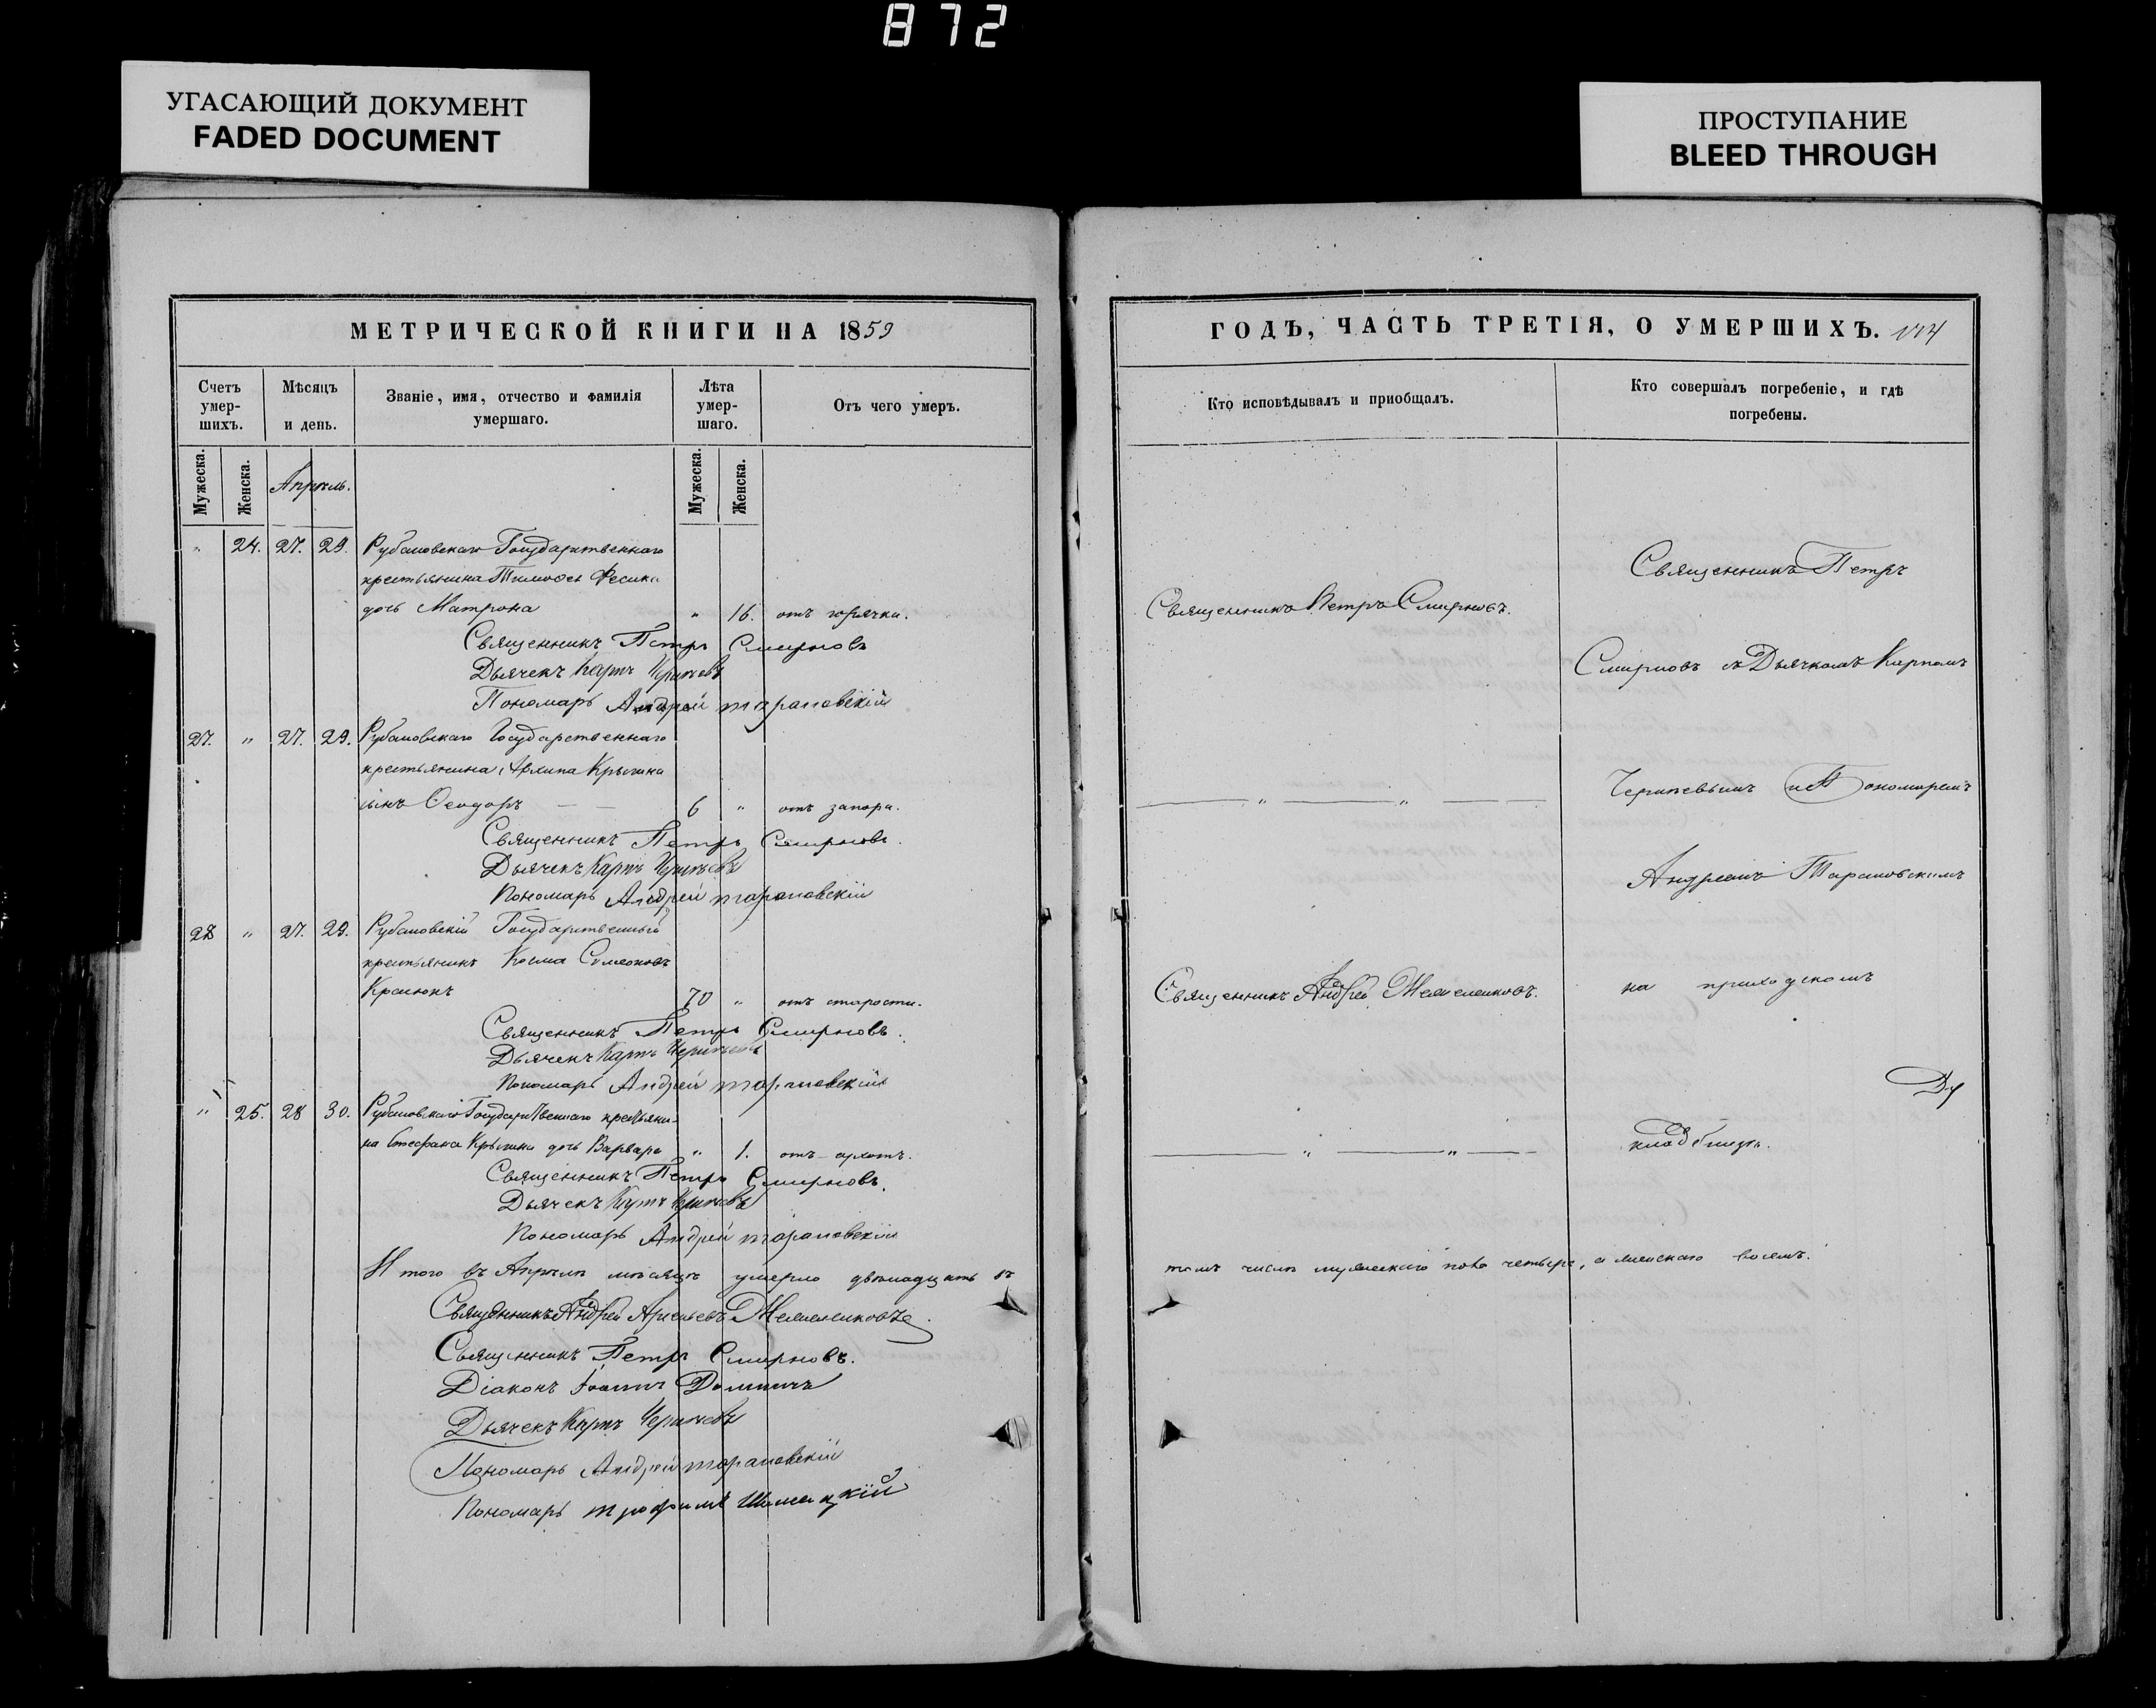 872
УГАСАЮЩИЙ ДОКУМЕНТ
FADED DOCUMENT
ПРОСТУПАНИЕ
BLEED THROUGH
МЕТРИЧЕСКОЙ КНИГИ НА 1859
Счетъ умер-шихъ.
Мѣсяцъ и день.
Званіе, имя, отчество и фамилія умершаго.
Лѣта умер-шаго.
Отъ чего умеръ.
Мужеска. Женска. Апрѣль. Мужеска. Женска.
" 24. 27. 29. Рубановскаго Государственнаго
крестьянина Тимоѳея Фесика
дочь Матрона " 16. отъ горячки.
Священникъ Петръ Смирновъ
Дьячекъ Карпъ
Пономарь Андрей Тарановскій
27. " 27. 29. Рубановскаго Государственнаго
крестьянина Архипа Крыгина
сынъ Ѳеодоръ — — 6 " отъ запора.
Священникъ Петръ Смирновъ.
Дьячекъ Карпъ
Пономарь Андрей Тарановскій
28 " 27. 29. Рубановскій Государственный
крестьянинъ Косма Симеоновъ
70 " отъ старости.
Священникъ Петръ Смирновъ.
Дьячекъ Карпъ
Пономарь Андрей Тарановскій
" 25. 28 30. Рубановскаго Государственнаго крестьяни-
на Стефана Крыгина дочь Варвара " 1. отъ
Священникъ Петръ Смирновъ.
Дьячекъ Карпъ
Пономарь Андрей Тарановскій
Итого въ Апрѣлѣ мѣсяцѣ умерло двѣнадцать въ
Священникъ Андрей Арсеньевъ
Священникъ Петръ Смирновъ.
Діаконъ Іоаннъ
Дьячекъ Карпъ
Пономарь Андрей Тарановскій
Пономарь Трофимъ
ГОДЪ, ЧАСТЬ ТРЕТІЯ, О УМЕРШИХЪ.
Кто исповѣдывалъ и пріобщалъ.
Кто совершалъ погребеніе, и гдѣ погребены.
Священникъ Петръ
Священникъ Петръ Смирновъ.
Смирновъ съ Дьячкомъ Карпомъ
— " — " — и Пономаремъ
Андреемъ Тарановскимъ
Священникъ Андрей
на приходскомъ
— " — " —
кладбищѣ.
томъ числѣ мужескаго пола четыре, а женскаго восемь.